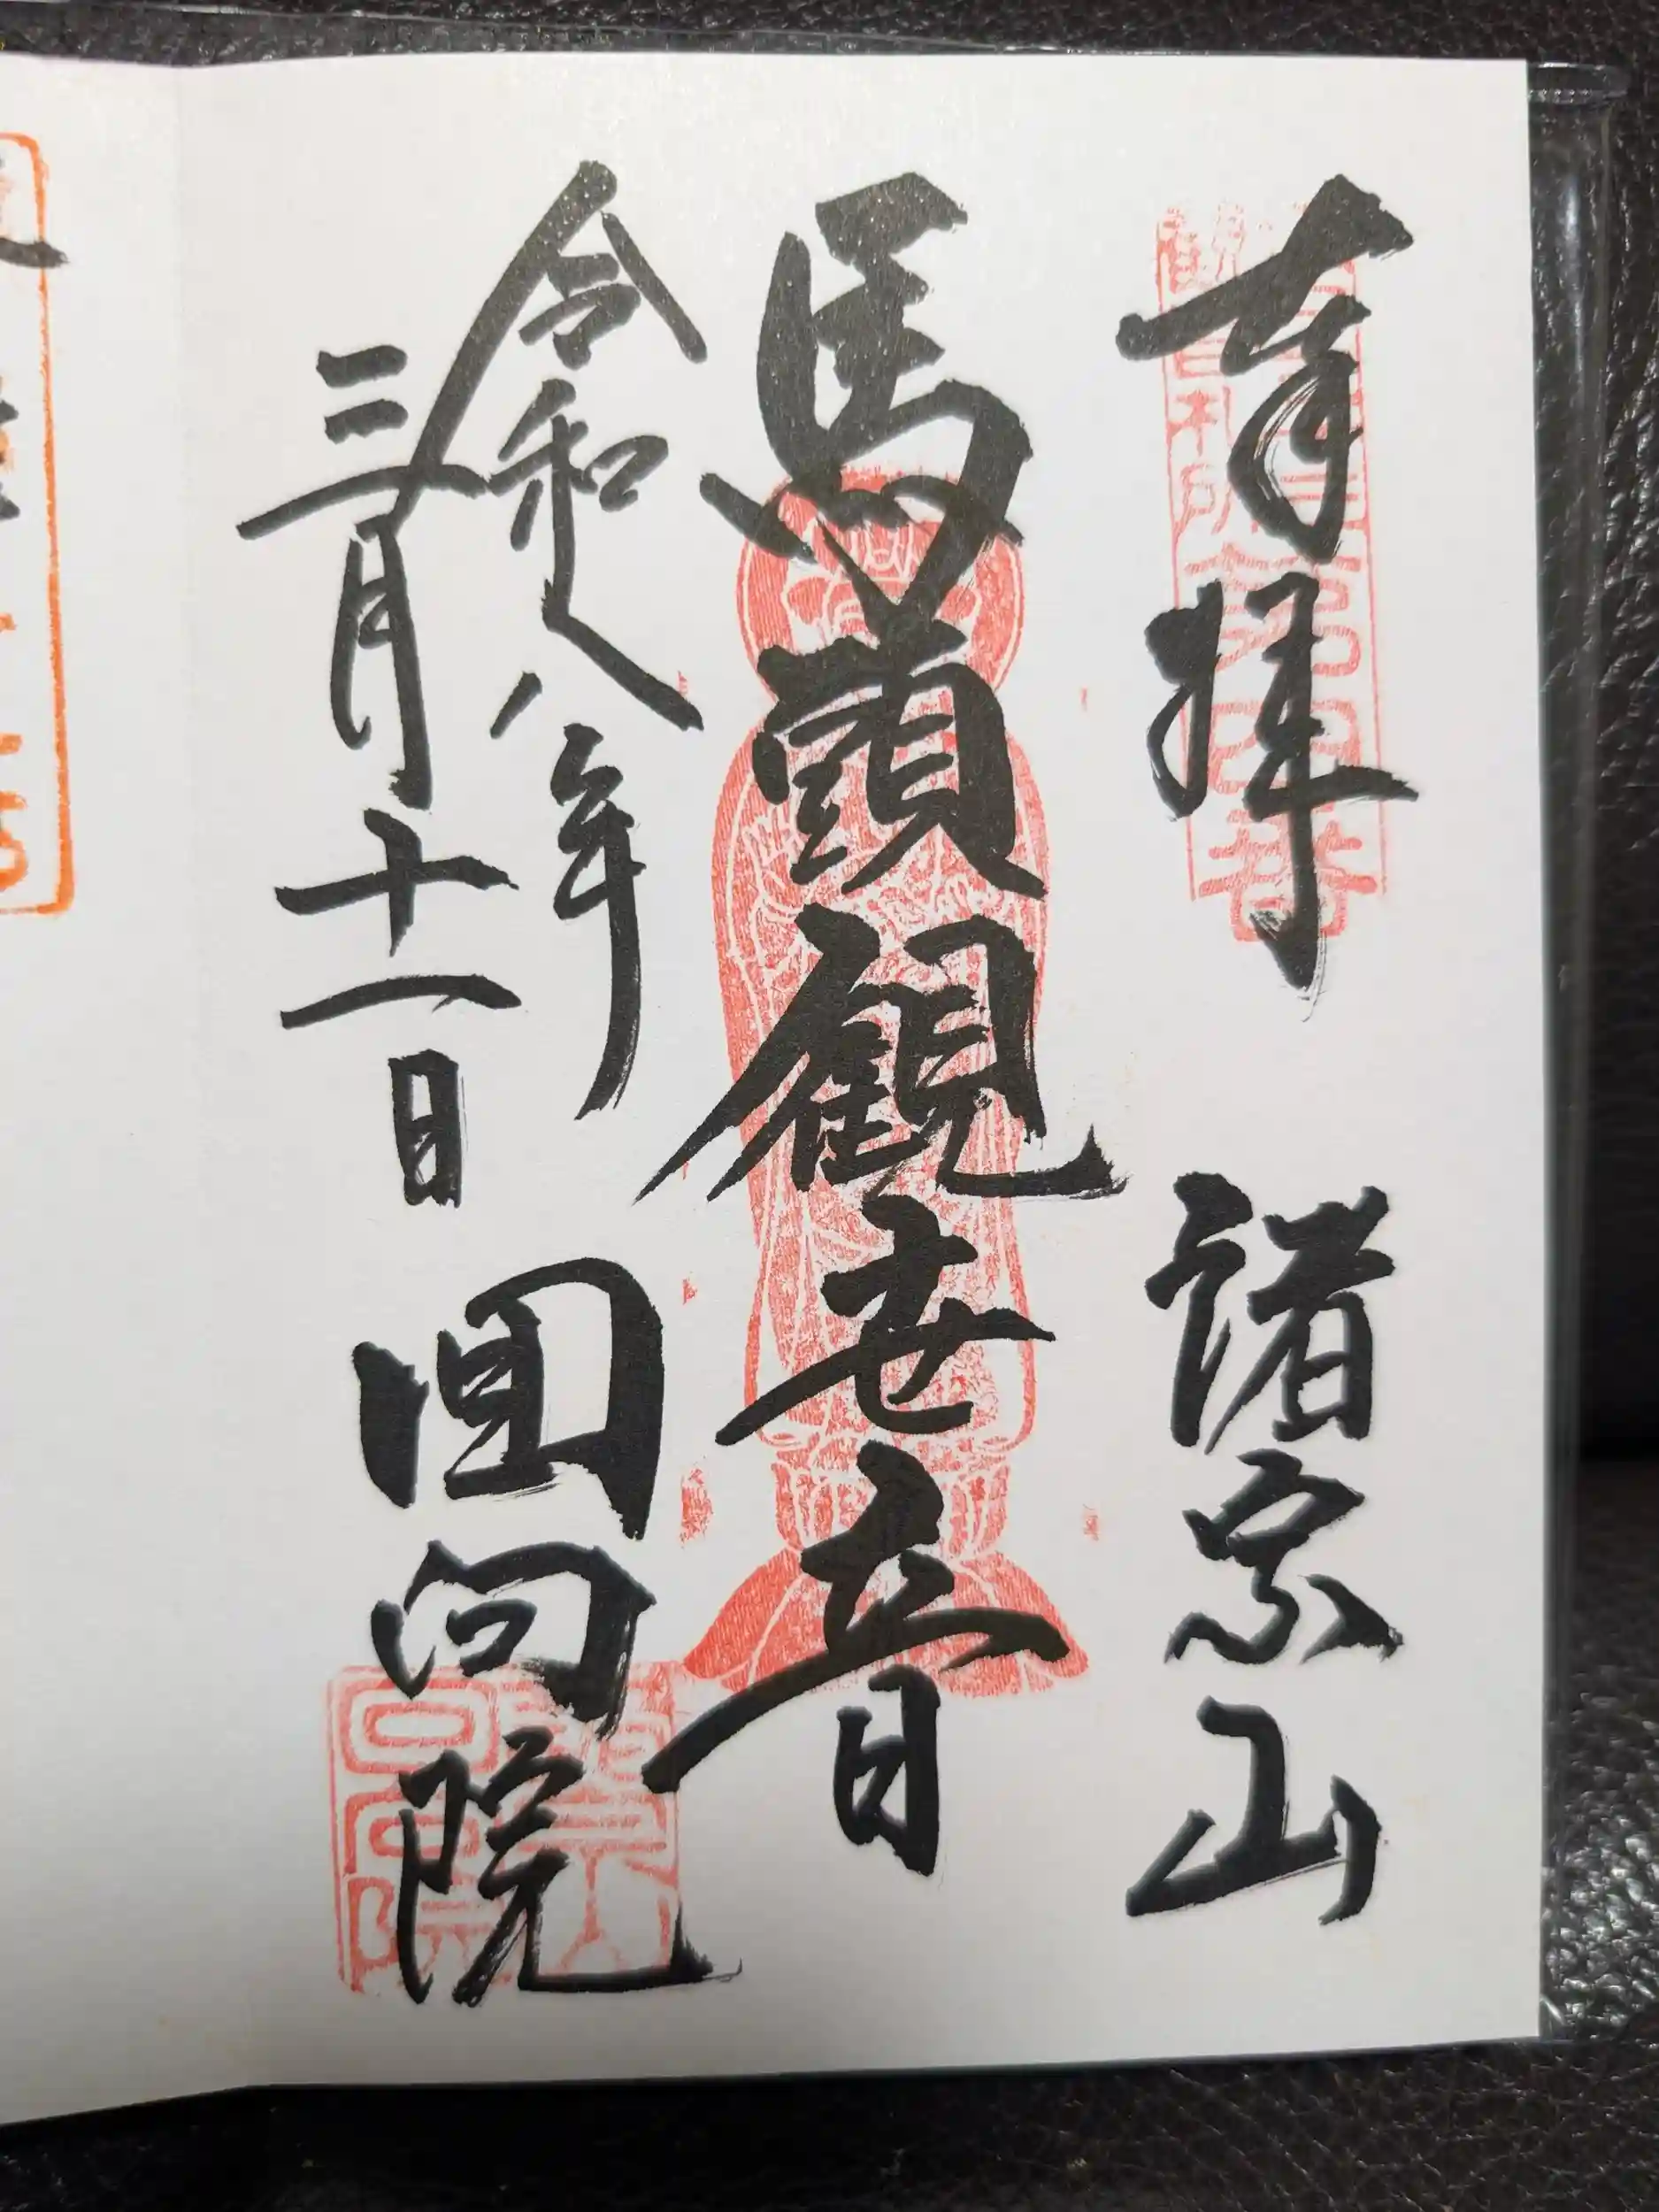 奉拝 諸宗山
馬頭観世音
令和八年
三月十一日 回向院